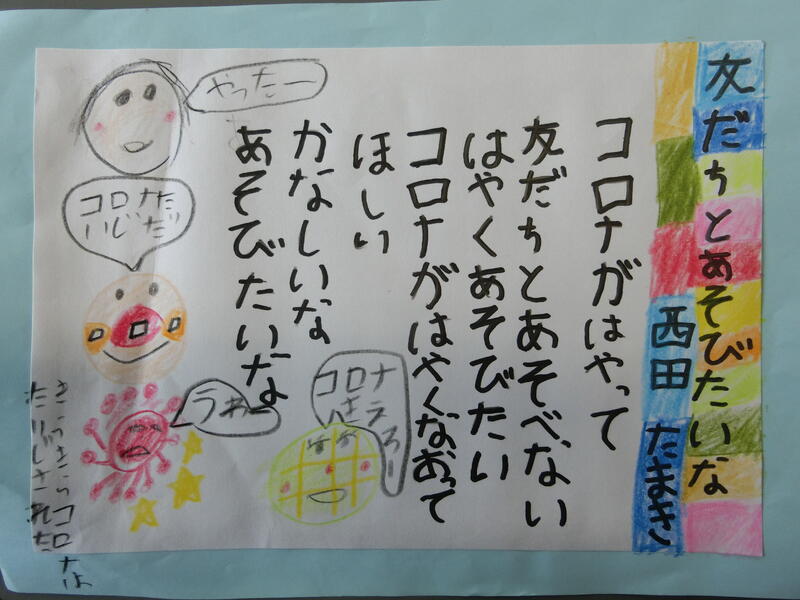 友だちとあそびたいな
西田 たまき
コロナがはやって
友だちとあそべない
はやくあそびたい
コロナがはやくなおって
ほしい
かなしいな
あそびたいな
やったー
コロナた
いじだ
うわー
たいじされた